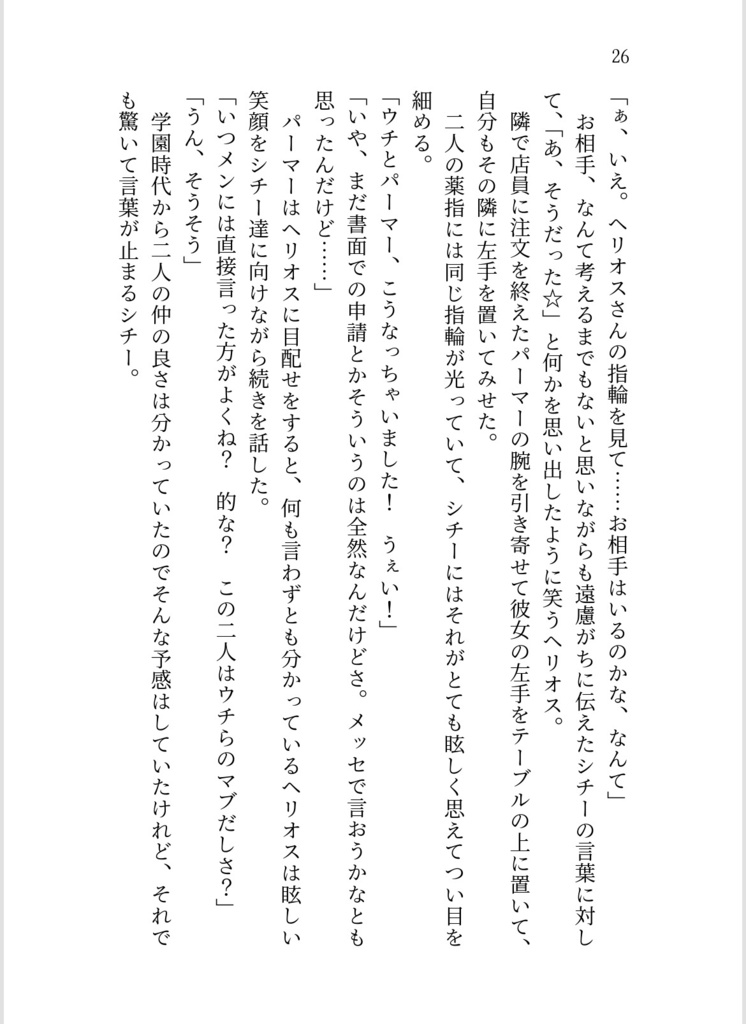 26
「ぁ、いえ。ヘリオスさんの指輪を見て……お相手はいるのかな、なんて」
　お相手、なんて考えるまでもないと思いながらも遠慮がちに伝えたシチーの言葉に対し
て、「あ、そうだった☆」と何かを思い出したように笑うヘリオス。
　隣で店員に注文を終えたパーマーの腕を引き寄せて彼女の左手をテーブルの上に置いて、
自分もその隣に左手を置いてみせた。
　二人の薬指には同じ指輪が光っていて、シチーにはそれがとても眩しく思えてつい目を
細める。
「ウチとパーマー、こうなっちゃいました！　うぇい！」
「いや、まだ書面での申請とかそういうのは全然なんだけどさ。メッセで言おうかなとも
思ったんだけど……」
　パーマーはヘリオスに目配せをすると、何も言わずとも分かっているヘリオスは眩しい
笑顔をシチー達に向けながら続きを話した。
「いつメンには直接言った方がよくね？　的な？　この二人はウチらのマブだしさ？」
「うん、そうそう」
　学園時代から二人の仲の良さは分かっていたのでそんな予感はしていたけれど、それで
も驚いて言葉が止まるシチー。